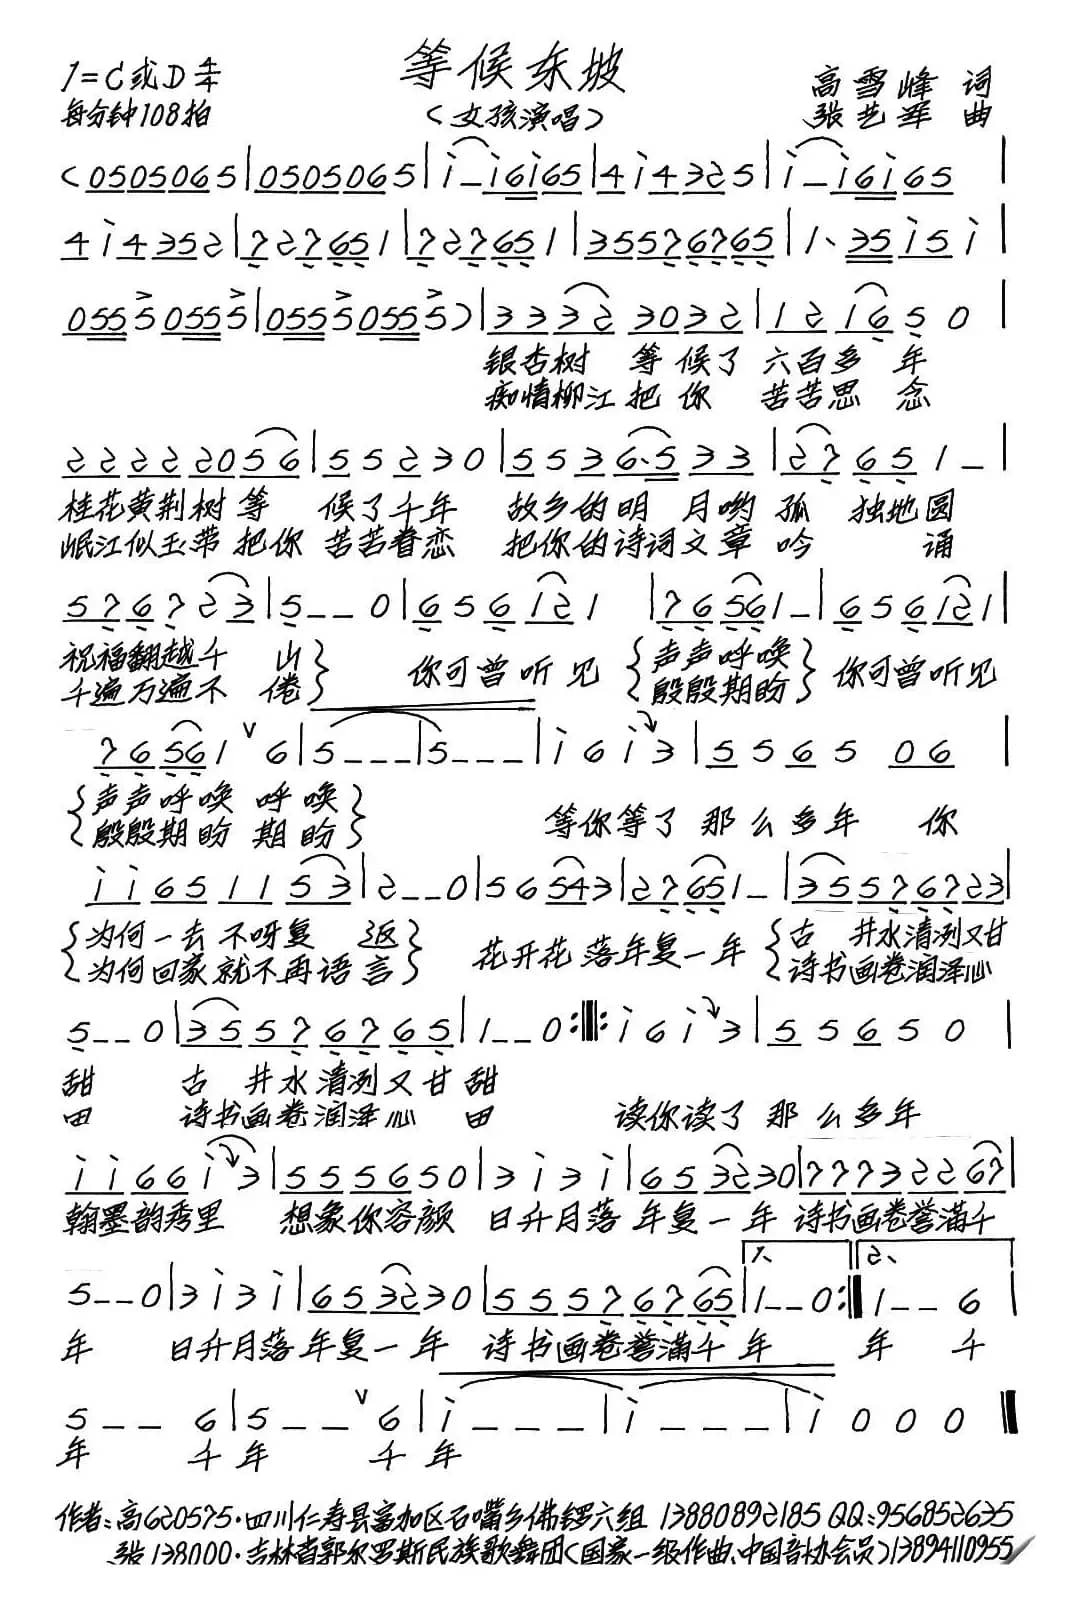 等候东坡
1=C或D 4/4
高雪峰 词
每分钟108拍
（女孩演唱）
张艺军 曲
（0505065|0505065|i－i6i65|4i4325|i－i6i65|
4i4352|727651|727651|35576765|1、35i5i|
05550555|05550555）|3332 3032|121650|
银杏树 等候了 六百多 年
痴情柳江把你 苦苦思 念
22222056|55230|5536·533|27651－|
桂花黄荆树等 候了千年 故乡的明 月哟孤 独地圆
岷江似玉带把你 苦苦眷恋 把你的诗词文章吟 诵
576723|5－－0|656121|76561－|656121|
祝福翻越千 山 你可曾听见 声声呼唤 你可曾听见
千遍万遍不 倦 殷殷期盼
76561 6|5－－－|5－－－|i6i3|5565 06|
声声呼唤 呼唤
殷殷期盼 期盼 等你等了 那么多年 你
ii651153|2－－0|56543|27651－|35576723|
为何一去不呀复 返 花开花落年复一年 古 井水清冽又甘
为何回家就不再语言 诗书画卷润泽心
5－－0|35576765|1－－0:||:i6i3|55650|
甜 古 井水清冽又甘甜
田 诗书画卷润泽心 田 读你读了 那么多年
ii66i3|555650|3i3i|653230|77732267|
翰墨韵秀里 想象你容颜 日升月落 年复一年 诗书画卷誉满千
1、 2、
5－－0|3i3i|653230|55576765|1－－0:||1－－6|
年 日升月落年复一年 诗书画卷誉满千年 年 千
5－－6|5－－6|i－－－|i－－－|i000||
年 千年 千年
作者:高620575·四川仁寿县富加区石嘴乡佛锣六组 13880892185 QQ:956852635
张138000·吉林省郭尔罗斯民族歌舞团（国家一级作曲、中国音协会员）13894110955